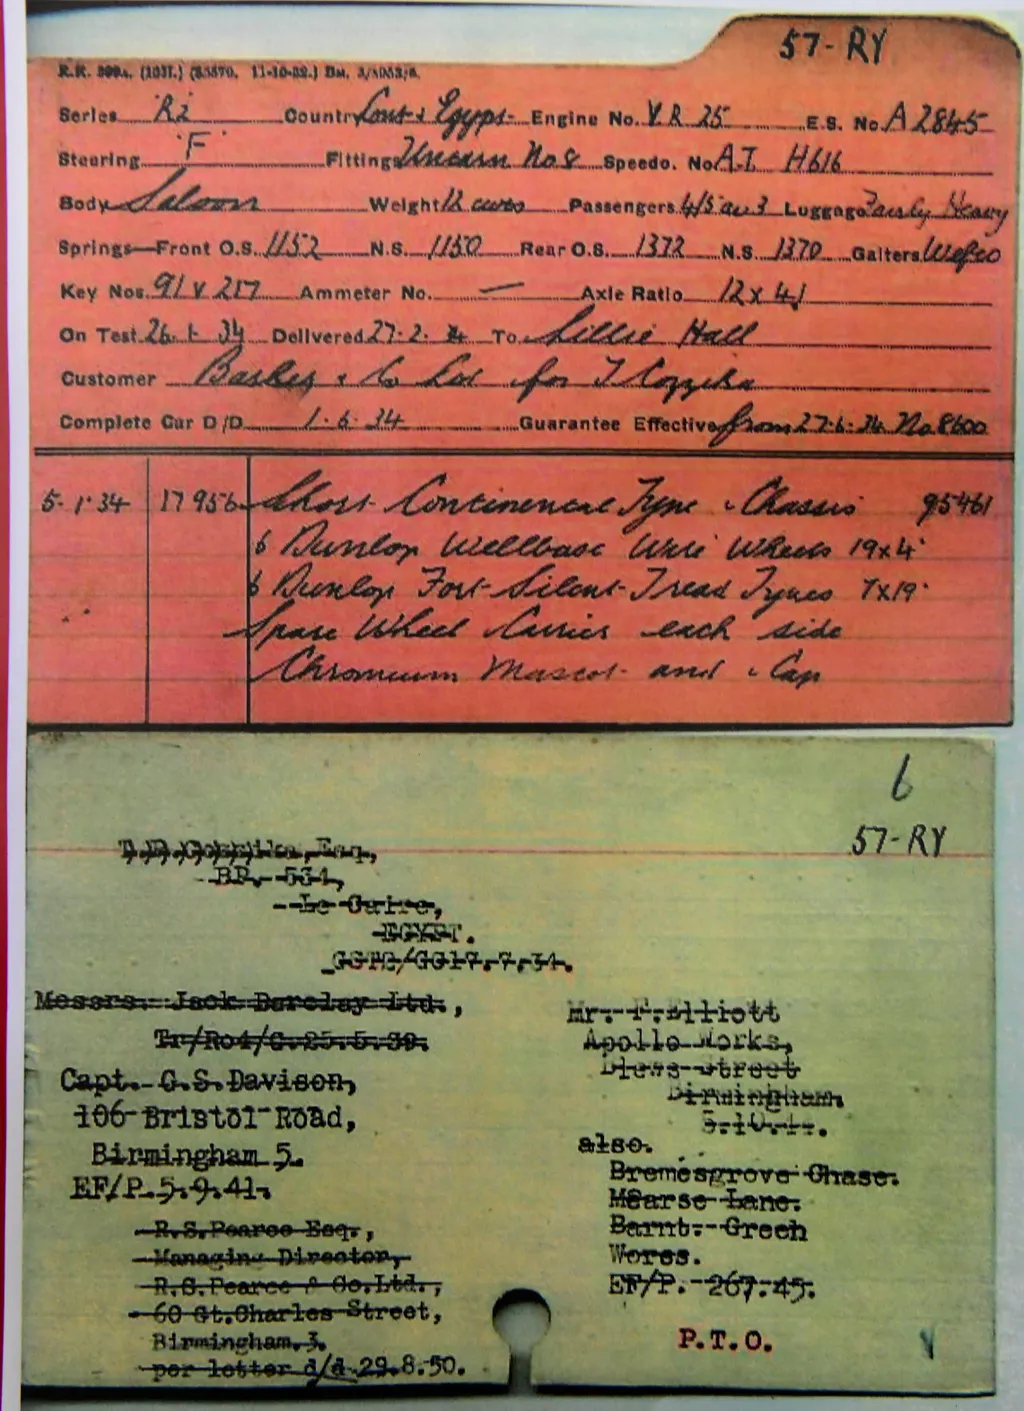 57-RY
Series R2 Country Cont & Egypt Engine No. V.R 25 E.S. No. A 2845
Steering 'F' Fitting No 8 Speedo. No A.T. H616
Body Saloon Weight 12 cwts Passengers 4/5 av 3 Luggage Fairly Heavy
Springs—Front O.S. 1152 N.S. 1150 Rear O.S. 1372 N.S. 1370 Gaiters Wefco
Key Nos. 91 V 217 Ammeter No. — Axle Ratio 12 x 41
On Test 26.1.34 Delivered 27.2. To Lillie Hall
Customer Barker & Co Ltd for
Complete Car D/D 1.6.34 Guarantee Effective from 27.6.34 No 8600
5.1.34 17956 Short Continental Type Chassis 95461
6 Dunlop Wellbase Wire Wheels 19x4"
6 Dunlop Fort Silent Tread Tyres 7x19"
Spare Wheel Carrier each side
Chromium Mascot and Cap
6
57-RY
Esq,
BP. 534,
Le Caire,
EGYPT.
17.7.34.
Messrs. Jack Barclay Ltd.,
Tr/Ro4/G.25.5.39.
Capt. G.S.Davison,
106 Bristol Road,
Birmingham 5.
EF/P.5.9.41.
R.S.Pearce Esq.,
Managing Director,
R.S.Pearce & Co.Ltd.,
60 St.Charles Street,
Birmingham.3.
per letter d/d 29.8.50.
Mr. F.Elliott
Apollo Works,
Street
Birmingham.
also.
Bremesgrove Chase.
Lane.
Barnt. Green
Worss.
EF/P. 267.45.
P.T.O.